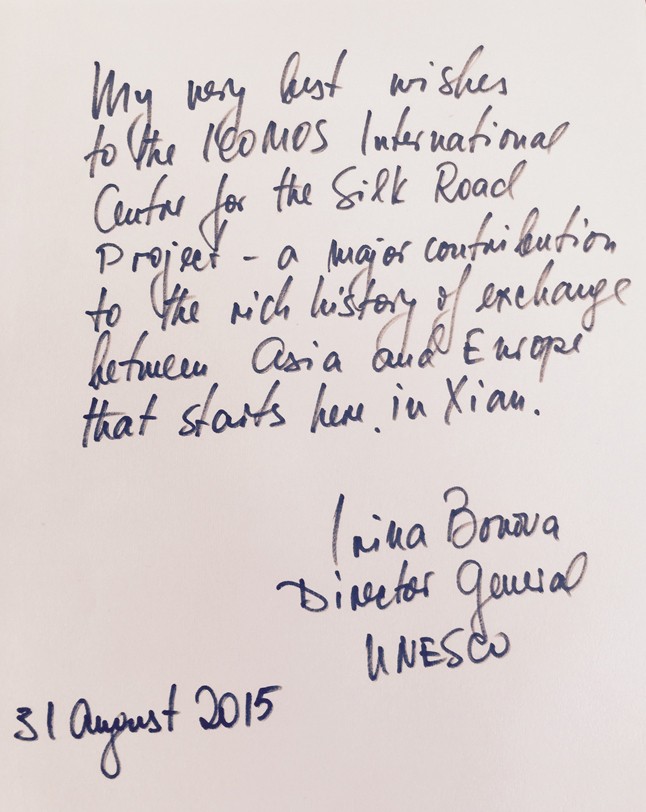 My very best wishes
to the ICOMOS International
Centre for the Silk Road
Project - a major contribution
to the rich history of exchange
between Asia and Europe
that starts here in Xian.
Irina Bokova
Director General
UNESCO
31 August 2015